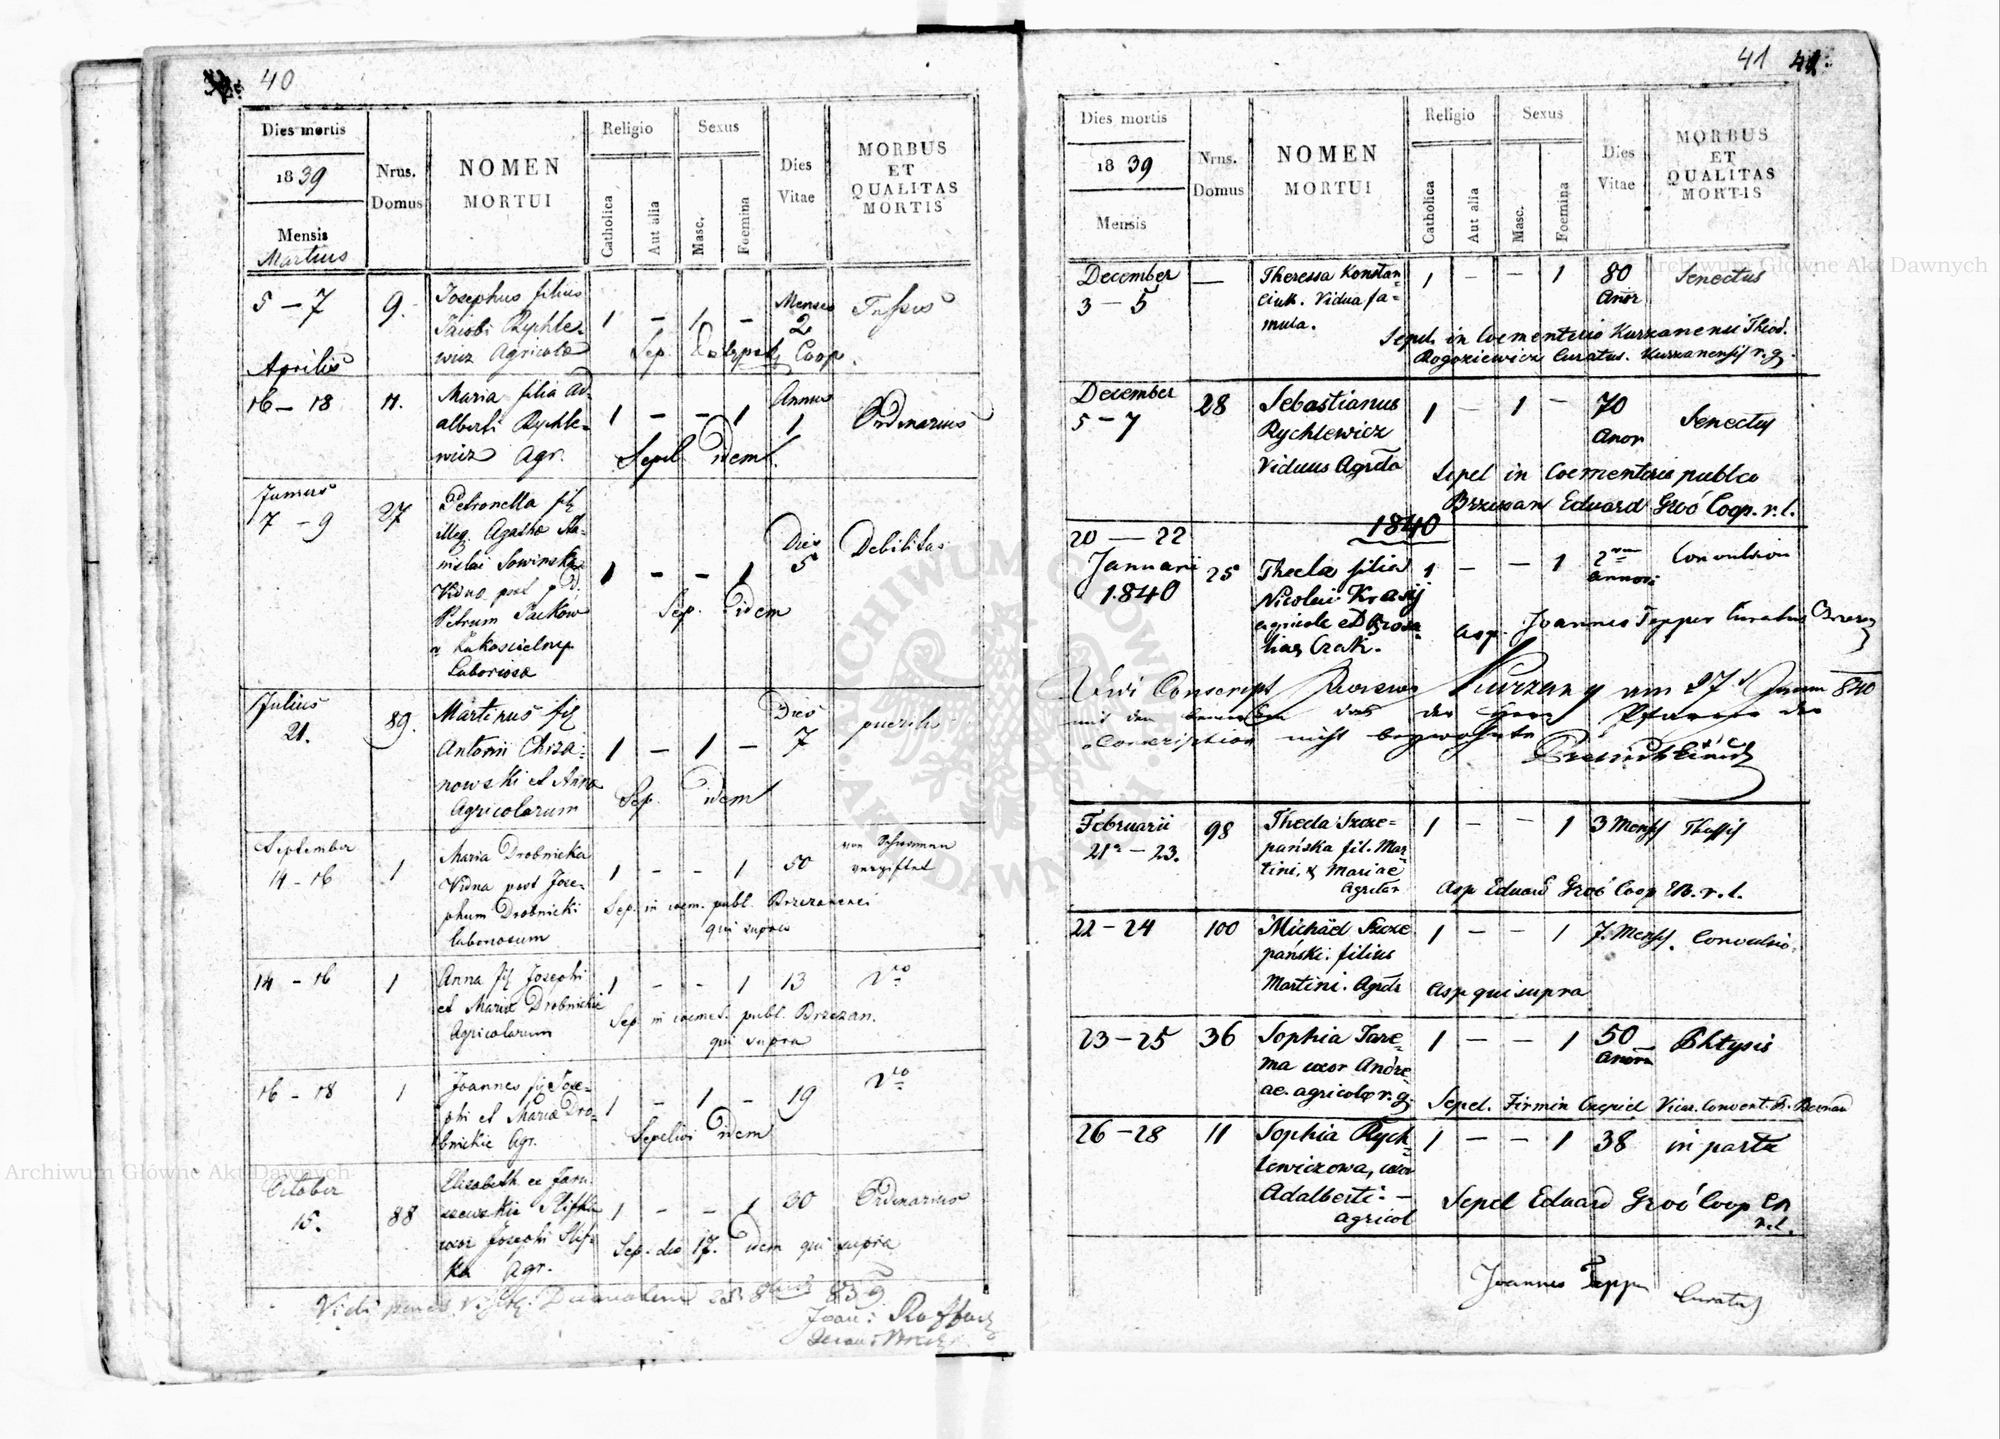 40
Dies mortis
1839
Mensis
Martius
Nrus.
Domus
NOMEN
MORTUI
Religio
Catholica
Aut alia
Sexus
Masc.
Foemina
Dies
Vitae
MORBUS
ET
QUALITAS
MORTIS
5 - 7
9.
Josephus filius
Jacobi Rychle-
wicz Agricola
1 - 1 -
Menses
2
Tussis
Sep. Coop.
Aprilis
16 - 18
11.
Maria filia Ad-
alberti Rychle-
wicz Agr.
1 - - 1
Annus
1
Ordinarius
Sepel idem.
Junius
7 - 9
27
Petronella fil
illeg. Agatha Sta-
nislai Sowinska
Vidua post
Petrum
Laboriosa
1 - - 1
Dies
5
Debilitas
Sep. idem
Julius
21.
89.
Martinus fil
Antonii Chrza-
nowski et Anna
Agricolarum
1 - 1 -
Dies
7
Sep. idem
September
14 - 16
1
Maria Drobnicka
Vidua post Jose-
phum Drobnicki
laboriosum
1 - - 1
50
von Schwemmen
vergiftet
Sep. in coem. publ. Brzezanensi
qui supra
14 - 16
1
Anna fil Josephi
et Maria Drobnickie
Agricolarum
1 - - 1
13
dto
Sep in coemet. publ. Brzezan.
qui supra
16 - 18
1
Joannes fil Jose-
phi et Maria Dro-
bnickie Agr.
1 - 1 -
19
dto
Sepelivi idem
October
15.
88
Elisabeth
uxor Josephi Slif-
ka Agr.
1 - - 1
30
Ordinarius
Sep. die 17. idem qui supra
41
Dies mortis
1839
Mensis
Nrus.
Domus
NOMEN
MORTUI
Religio
Catholica
Aut alia
Sexus
Masc.
Foemina
Dies
Vitae
MORBUS
ET
QUALITAS
MORTIS
December
3 - 5
—
Theressa Konstan-
ciuk. Vidua fa-
mula.
1 - - 1
80
Anor
Senectus
Sepel. in Coementerio Kurzanensi Theod.
Rogoziewicz Curatus. Kurzanensis r. g.
December
5 - 7
28
Sebastianus
Rychlewicz
Viduus Agrcla
1 - 1 -
70
Anor
Senectus
Sepel in Coementerio publco
Brzezan Eduard Groó Coop. r. l.
1840
20 — 22
Januarii
1840
25
Thecla filia
Nicolai Krasij
agricole et Rosa-
lias Czak.
1 - - 1
2
annor.
Convulsion
Asp. Joannes Tepper Curatus
Kurzany am 27
mit dem das der Herr Pfarrer der
Conscription nicht beywohnte
Februarii
21 - 23.
98
Thecla Szcze-
pańska fil. Mar-
tini, & Mariae
Agrclar
1 - - 1
3 Mensis
Thussis
Asp Eduard Groó Coop r. l.
22 - 24
100
Michäel Szcze
pański: filius
Martini. Agrcle
1 - - 1
7. Mensis.
Convulsio.
Asp qui supra
23 - 25
36
Sophia Jare-
ma uxor Andre-
ae. agricola r. g.
1 - - 1
50
Anorm
Phtysis
Sepel. Firmin Vicar. Convent.
26 - 28
11
Sophia Rych-
lewiczowa, uxor
Adalberti -
agricol
1 - - 1
38
in parta
Sepel Eduard Groó Coop
r. l.
Joannes Tepper Curatus
ARCHIWUM GŁÓWNE AKT DAWNYCH
Archiwum Główne Akt Dawnych
Archiwum Główne Akt Dawnych